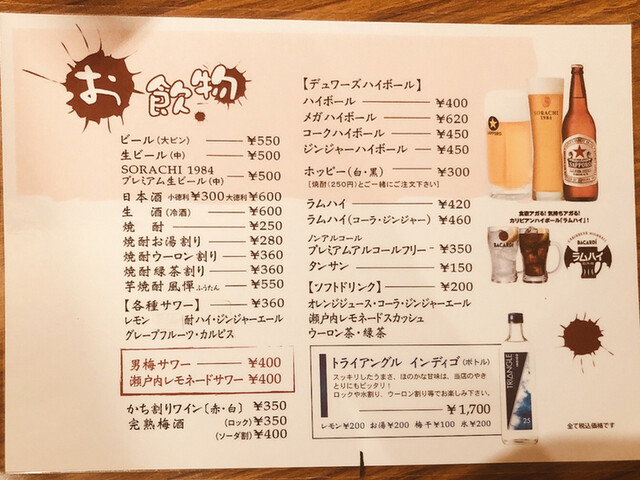 お飲物
ビール(大ビン) ¥550
生ビール(中) ¥500
SORACHI 1984
プレミアム生ビール(中) ¥500
日本酒 小徳利¥300 大徳利¥600
生酒(冷酒) ¥600
焼酎 ¥250
焼酎お湯割り ¥280
焼酎ウーロン割り ¥360
焼酎緑茶割り ¥360
芋焼酎 風憚 ふうたん ¥550
【各種サワー】 ¥360
レモン 酎ハイ・ジンジャーエール
グレープフルーツ・カルピス
男梅サワー ¥400
瀬戸内レモネードサワー ¥400
かち割りワイン〔赤・白〕 ¥350
完熟梅酒 (ロック) ¥350
(ソーダ割) ¥400
【デュワーズハイボール】
ハイボール ¥400
メガハイボール ¥620
コークハイボール ¥450
ジンジャーハイボール ¥450
ホッピー(白・黒) ¥300
[焼酎(250円)とご一緒にご注文下さい]
ラムハイ ¥420
ラムハイ(コーラ・ジンジャー) ¥460
ノンアルコール
プレミアムアルコールフリー ¥350
タンサン ¥150
【ソフトドリンク】 ¥200
オレンジジュース・コーラ・ジンジャーエール
瀬戸内レモネードスカッシュ
ウーロン茶・緑茶
トライアングル インディゴ(ボトル)
スッキリしたうまさ、ほのかな甘味は、当店のやき
とりにもピッタリ!
ロックや水割り、ウーロン割り等でお楽しみ下さい。
¥1,700
レモン¥200 お湯¥200 梅干¥100 氷¥200
SORACHI
1984
SAPPORO
食飲アガる!気持ちアガる!
カリビアンハイボール「ラムハイ」!
BACARDI
BACARDI
ラムハイ
TRIANGLE
25
全て税込価格です